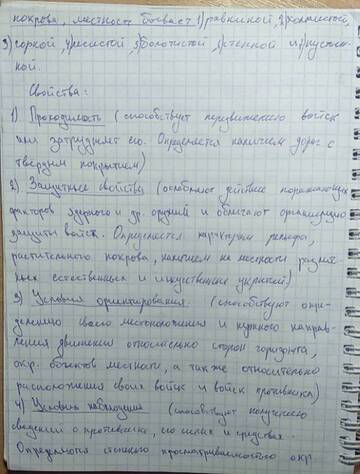 покрова, местность бывает 1) равнинной, 2) холмистой,
3) горной, 4) лесистой, 5) болотистой, 6) степной и 7) пустын-
ной.
Свойства:
1) Проходимость (способствует передвижению войск
или затрудняет его. Определяется наличием дорог с
твердым покрытием)
2) Защитные свойства (ослабляют действие поражающих
факторов ядерного и др. оружий и облегчают организацию
защиты войск. Определяется характером рельефа,
растительного покрова, наличием на местности различ-
ных естественных и искусственных укрытий)
3) Условия ориентирования. (способствуют опре-
делению своего местоположения и нужного направ-
ления движения относительно сторон горизонта,
окр. объектов местности, а также относительно
расположения своих войск и войск противника)
4) Условия наблюдения (способствуют получению
сведений о противнике, его силах и средствах.
Определяются степенью просматриваемости окр.